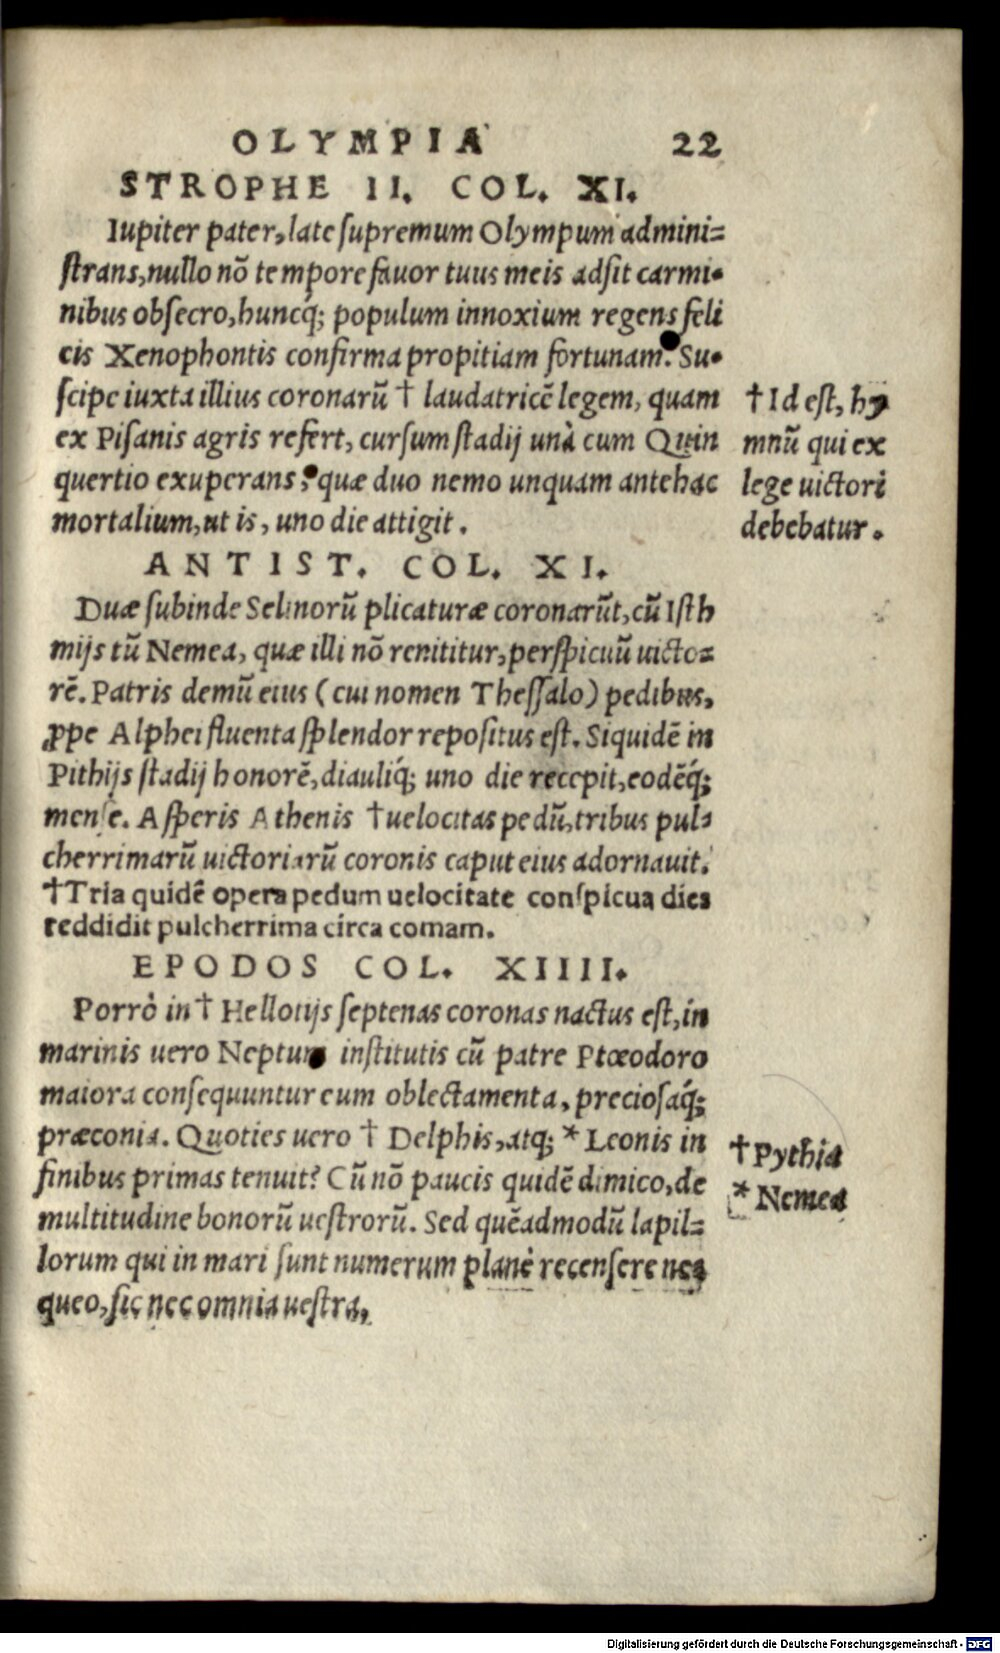 OLYMPIA 22
STROPHE II. COL. XI.
Iupiter pater, late supremum Olympum admini=
strans, nullo nō tempore favor tuus meis adsit carmi=
nibus obsecro, huncq́; populum innoxium regens feli
cis Xenophontis confirma propitiam fortunam. Su=
scipe iuxta illius coronarū † laudatricē legem, quam
ex Pisanis agris refert, cursum stadij unà cum Quin
quertio exuperans: quæ duo nemo unquam antehac
mortalium, ut is, uno die attigit.
† Id est, hy
mnū qui ex
lege uictori
debebatur.
ANTIST. COL. XI.
Duæ subinde Selinorū plicaturæ coronarūt, cū Isth
mijs tū Nemea, quæ illi nō renititur, perspicuū uicto=
rē. Patris demū eius (cui nomen Thessalo) pedibus,
ꝓpe Alphei fluenta splendor repositus est. Siquidē in
Pithijs stadij honorē, diauliq́; uno die recepit, eodēq́;
mense. Asperis Athenis † uelocitas pedū, tribus pul=
cherrimarū uictoriarū coronis caput eius adornauit.
† Tria quidē opera pedum uelocitate conspicua dies
reddidit pulcherrima circa comam.
EPODOS COL. XIIII.
Porrò in † Hellotijs septenas coronas nactus est, in
marinis uero Neptuni institutis cū patre Ptœodoro
maiora consequuntur eum oblectamenta, preciosaq́;
præconia. Quoties uero † Delphis, atq; * Leonis in
finibus primas tenuit? Cū nō paucis quidē dimico, de
multitudine bonorū uestrorū. Sed quēadmodū lapil=
lorum qui in mari sunt numerum planè recensere ne=
queo, sic nec omnia uestra.
† Pythia
* Nemea
Digitalisierung gefördert durch die Deutsche Forschungsgemeinschaft - DFG